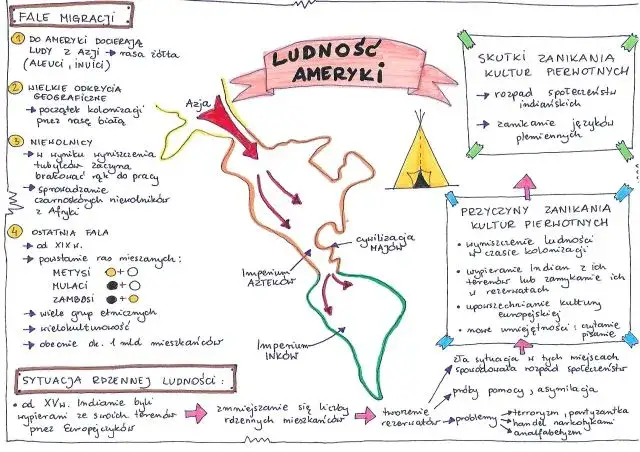 FALE MIGRACJI
1 DO AMERYKI DOCIERAJĄ
LUDY Z AZJI → rasa żółta
(ALEUCI, INUICI)
2 WIELKIE ODKRYCIA
GEOGRAFICZNE
→ początek kolonizacji
przez rasę białą
3 NIEWOLNICY
→ w wyniku wyniszczenia
tubylców zaczyna
brakować rąk do pracy
→ sprowadzanie
czarnoskórych niewolników
z Afryki
4 OSTATNIA FALA
→ od XIX w.
→ powstanie ras mieszanych:
METYSI + 
MULACI + 
ZAMBOSI + 
→ wiele grup etnicznych
→ wielokulturowość
→ obecnie ok. 1 mld mieszkańców
LUDNOŚĆ
AMERYKI
Azja
cywilizacja
MAJÓW
Imperium
AZTEKÓW
Imperium
INKÓW
SKUTKI ZANIKANIA
KULTUR PIERWOTNYCH
→ rozpad społeczeństw
indiańskich
→ zanikanie języków
plemiennych
PRZYCZYNY ZANIKANIA
KULTUR PIERWOTNYCH
• wyniszczenie ludności
w czasie kolonizacji
• wypieranie Indian z ich
terenów lub zamykanie ich
w rezerwatach
• upowszechnianie kultury
europejskiej
• nowe umiejętności: czytanie
pisanie
SYTUACJA RDZENNEJ LUDNOŚCI:
• od XV w. Indianie byli
wypierani ze swoich terenów
przez Europejczyków
→ zmniejszanie się liczby
rdzennych mieszkańców
→ tworzenie
rezerwatów
zła sytuacja w tych miejscach
spowodowała rozpad społeczeństw
próby pomocy, asymilacja
→ problemy
→ terroryzm, partyzantka
→ handel narkotykami
→ analfabetyzm